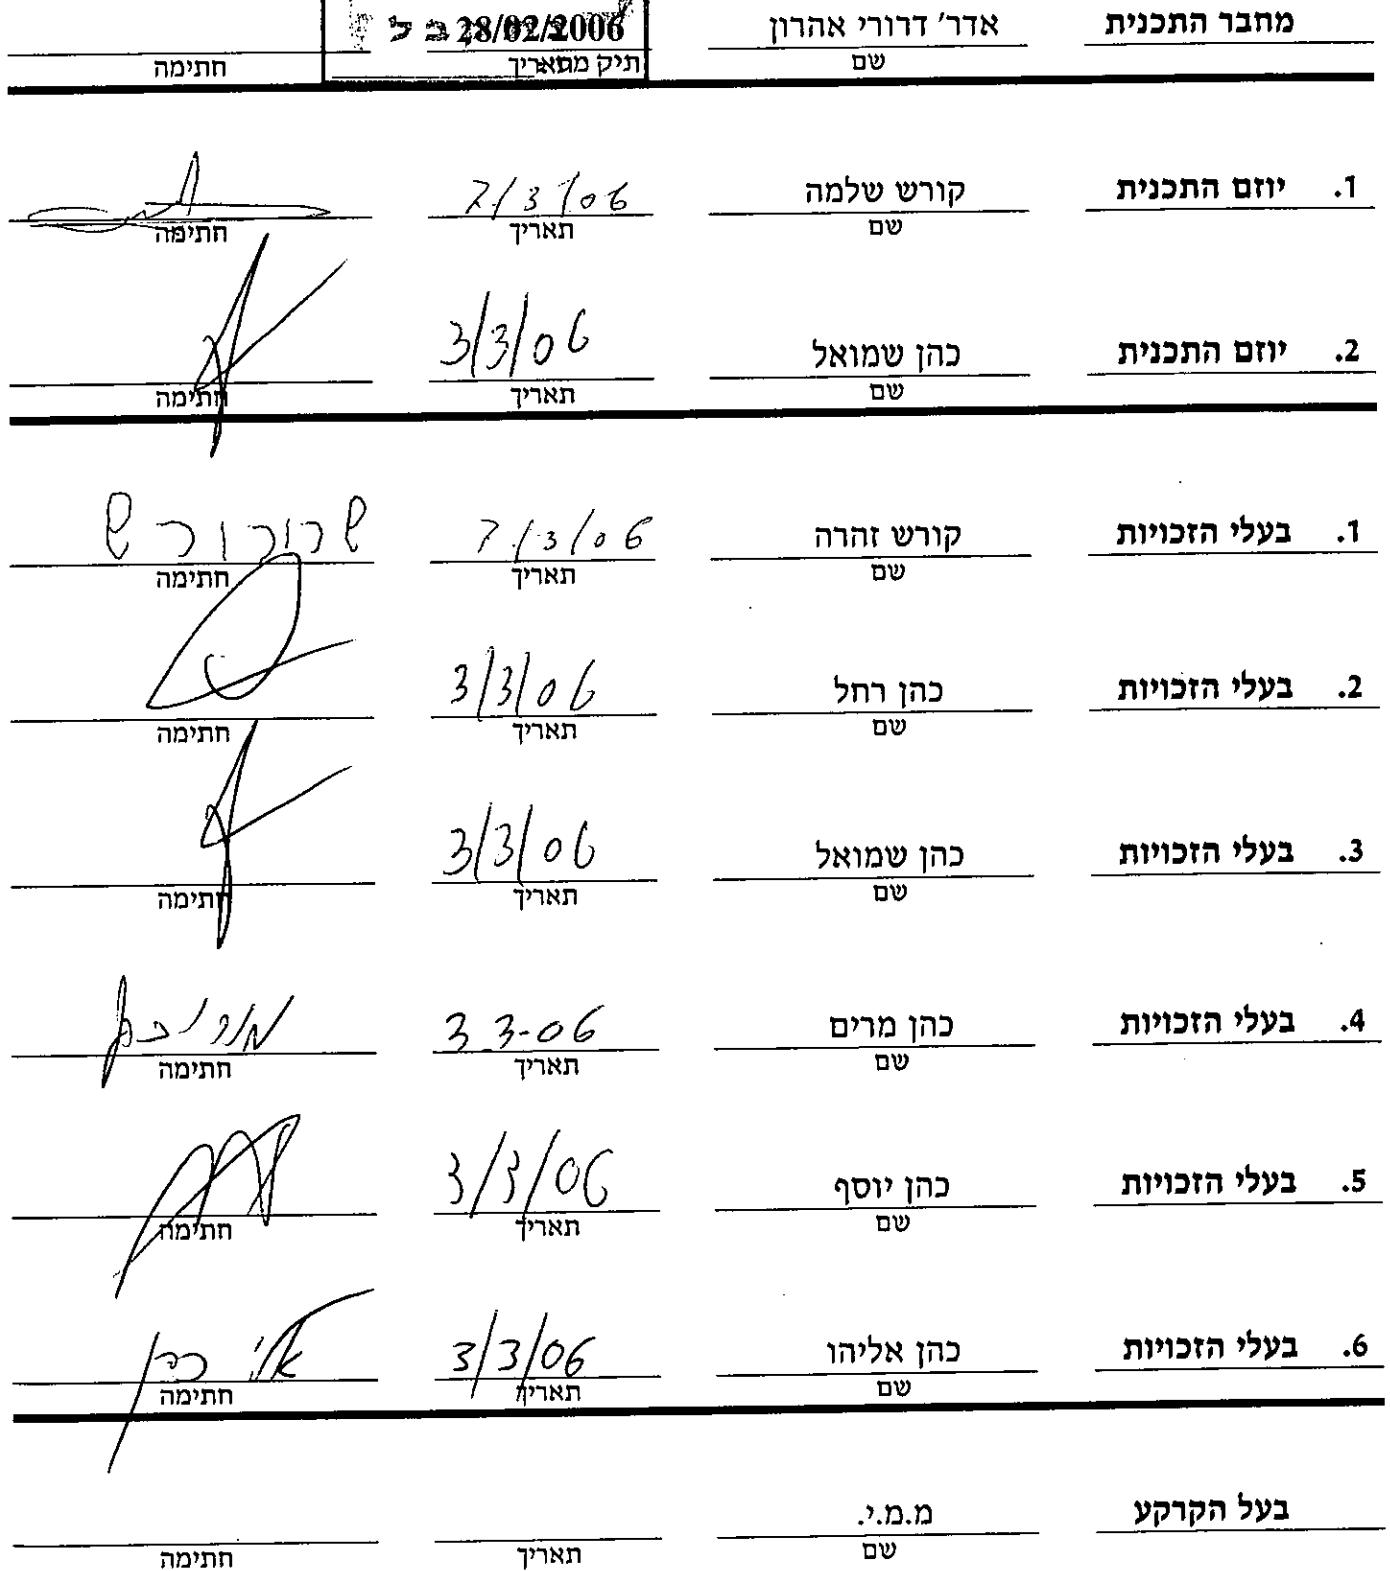 מחבר התכנית אדר' דרורי אהרון 28/02/2006
שם תאריך חתימה
1. יוזם התכנית קורש שלמה 7/3/06
שם תאריך חתימה
2. יוזם התכנית כהן שמואל 3/3/06
שם תאריך חתימה
1. בעלי הזכויות קורש זהרה 7/3/06
שם תאריך חתימה
2. בעלי הזכויות כהן רחל 3/3/06
שם תאריך חתימה
3. בעלי הזכויות כהן שמואל 3/3/06
שם תאריך חתימה
4. בעלי הזכויות כהן מרים 3 3-06
שם תאריך חתימה
5. בעלי הזכויות כהן יוסף 3/3/06
שם תאריך חתימה
6. בעלי הזכויות כהן אליהו 3/3/06 אלי כהן
שם תאריך חתימה
בעל הקרקע מ.מ.י.
שם תאריך חתימה